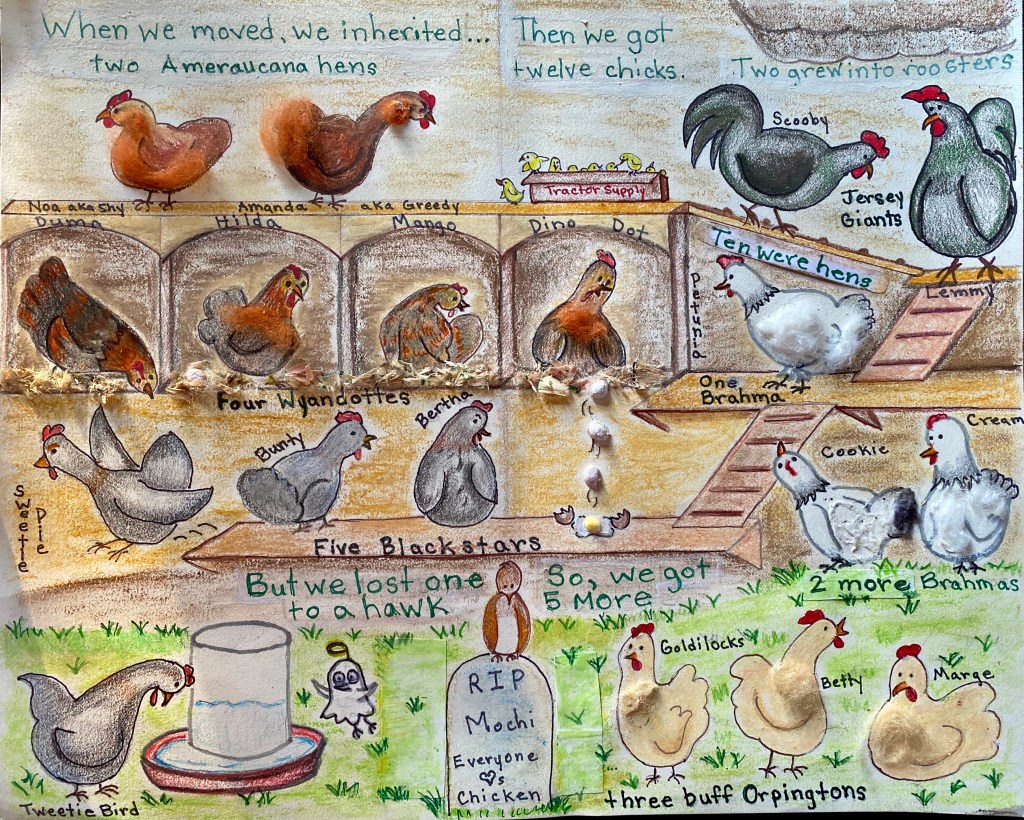 When we moved, we inherited...
two Ameraucana hens
Then we got
twelve chicks.
Two grew into roosters
Scooby
Tractor Supply
Jersey
Giants
Noa aka Shy
Amanda aka Greedy
Puma
Hilda
Mango
Dino Dot
Ten were hens
Lemmy
Petunia
One
Brahma
Four Wyandottes
Bertha
Bunty
Sweetie
Pie
Cookie
Cream
Five Blackstars
But we lost one
to a hawk
So, we got
5 More
2 more Brahmas
Goldilocks
Betty
Marge
RIP
Mochi
Everyone
♡s
Chicken
three buff Orpingtons
Tweetie Bird